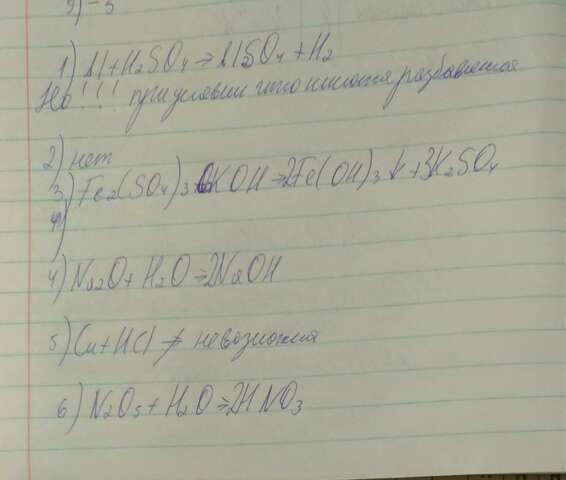 9) -3
1) Al + H2SO4 → AlSO4 + H2
Но!!! при условии что кислота разбавленная
2) нет
3) Fe2(SO4)3 6KOH → 2Fe(OH)3↓ + 3K2SO4
4)
4) Na2O + H2O → 2NaOH
5) Cu + HCl ≠ невозможна
6) N2O5 + H2O → 2HNO3